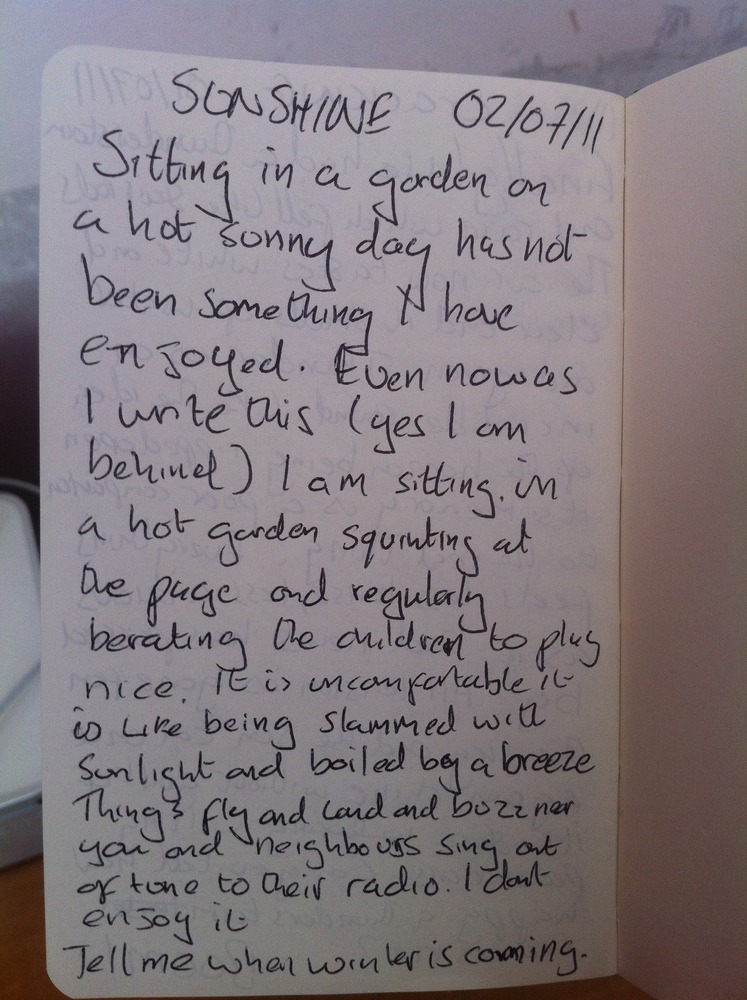 SUNSHINE 02/07/11
Sitting in a garden on
a hot sunny day has not
been something I have
enjoyed. Even now as
I write this (yes I am
behind) I am sitting in
a hot garden squinting at
the page and regularly
berating the children to play
nice. It is uncomfortable it
is like being slammed with
sunlight and boiled by a breeze
Things fly and land and buzz near
you and neighbours sing out
of tune to their radio. I dont
enjoy it
Tell me when winter is coming.